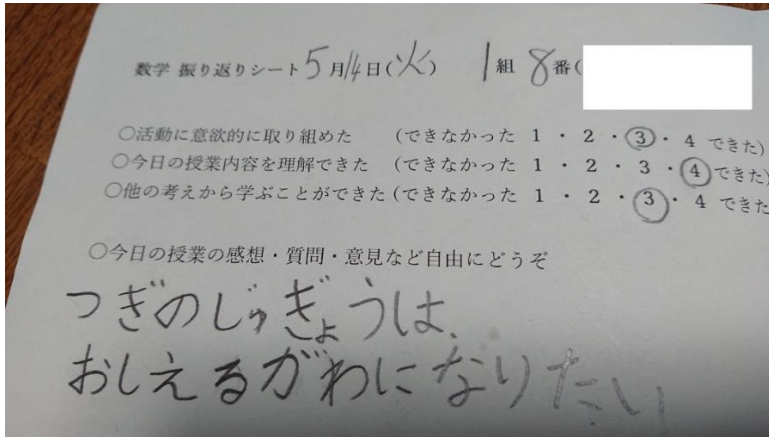 数学 振り返りシート 5月14日(火) 1組 8番(
○活動に意欲的に取り組めた (できなかった 1 ・ 2 ・ 3 ・ 4 できた)
○今日の授業内容を理解できた (できなかった 1 ・ 2 ・ 3 ・ 4 できた)
○他の考えから学ぶことができた (できなかった 1 ・ 2 ・ 3 ・ 4 できた
○今日の授業の感想・質問・意見など自由にどうぞ
つぎのじゅぎょうは、
おしえるがわになりたい